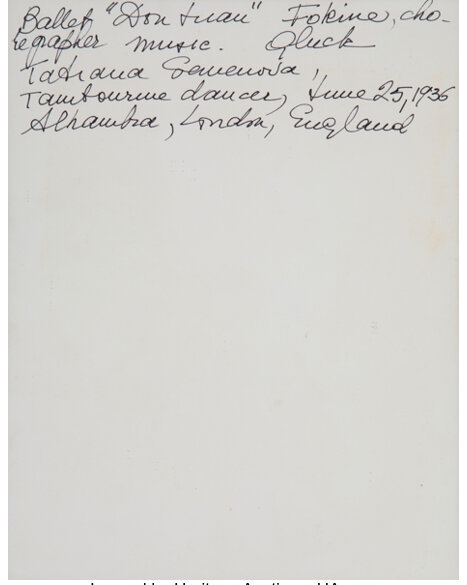 Ballet, "Don Juan" Fokine, cho-
reographer music. Gluck
Tatiana Semenova,
Tambourine dancer, June 25, 1936
Alhambra, London, England